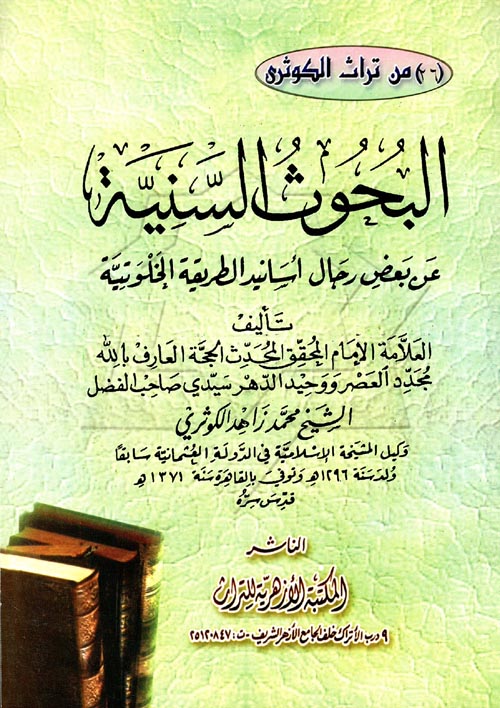 (٢٦) من تراث الكوثرى
البُحُوثُ السَّنِيَّة
عَن بَعض رجال أسَانيد الطريقة الخَلْوَتِيَّة
تأليف
العَلَّامَة الإمَام المُحَقِّق المُحَدِّث الحُجَّة العَارف بالله
مُجَدِّد العَصْر وَوَحِيد الدَّهْر سَيِّدي صَاحِب الفضل
الشيخ محمَّد زَاهد الكَوْثَري
وكيل المشيخة الإسْلاميَّة في الدَّولة العُثمَانيَّة سَابقًا
وُلدَ سَنَة ١٢٩٦هـ وَتوفي بالقاهرة سَنَة ١٣٧١هـ
قدّسَ سِرُّهُ
الناشر
المكتبة الأزهريّة للتراث
٩ درب الأتراك خلف الجامع الأزهر الشريف - ت: ٢٥١٢٠٨٤٧